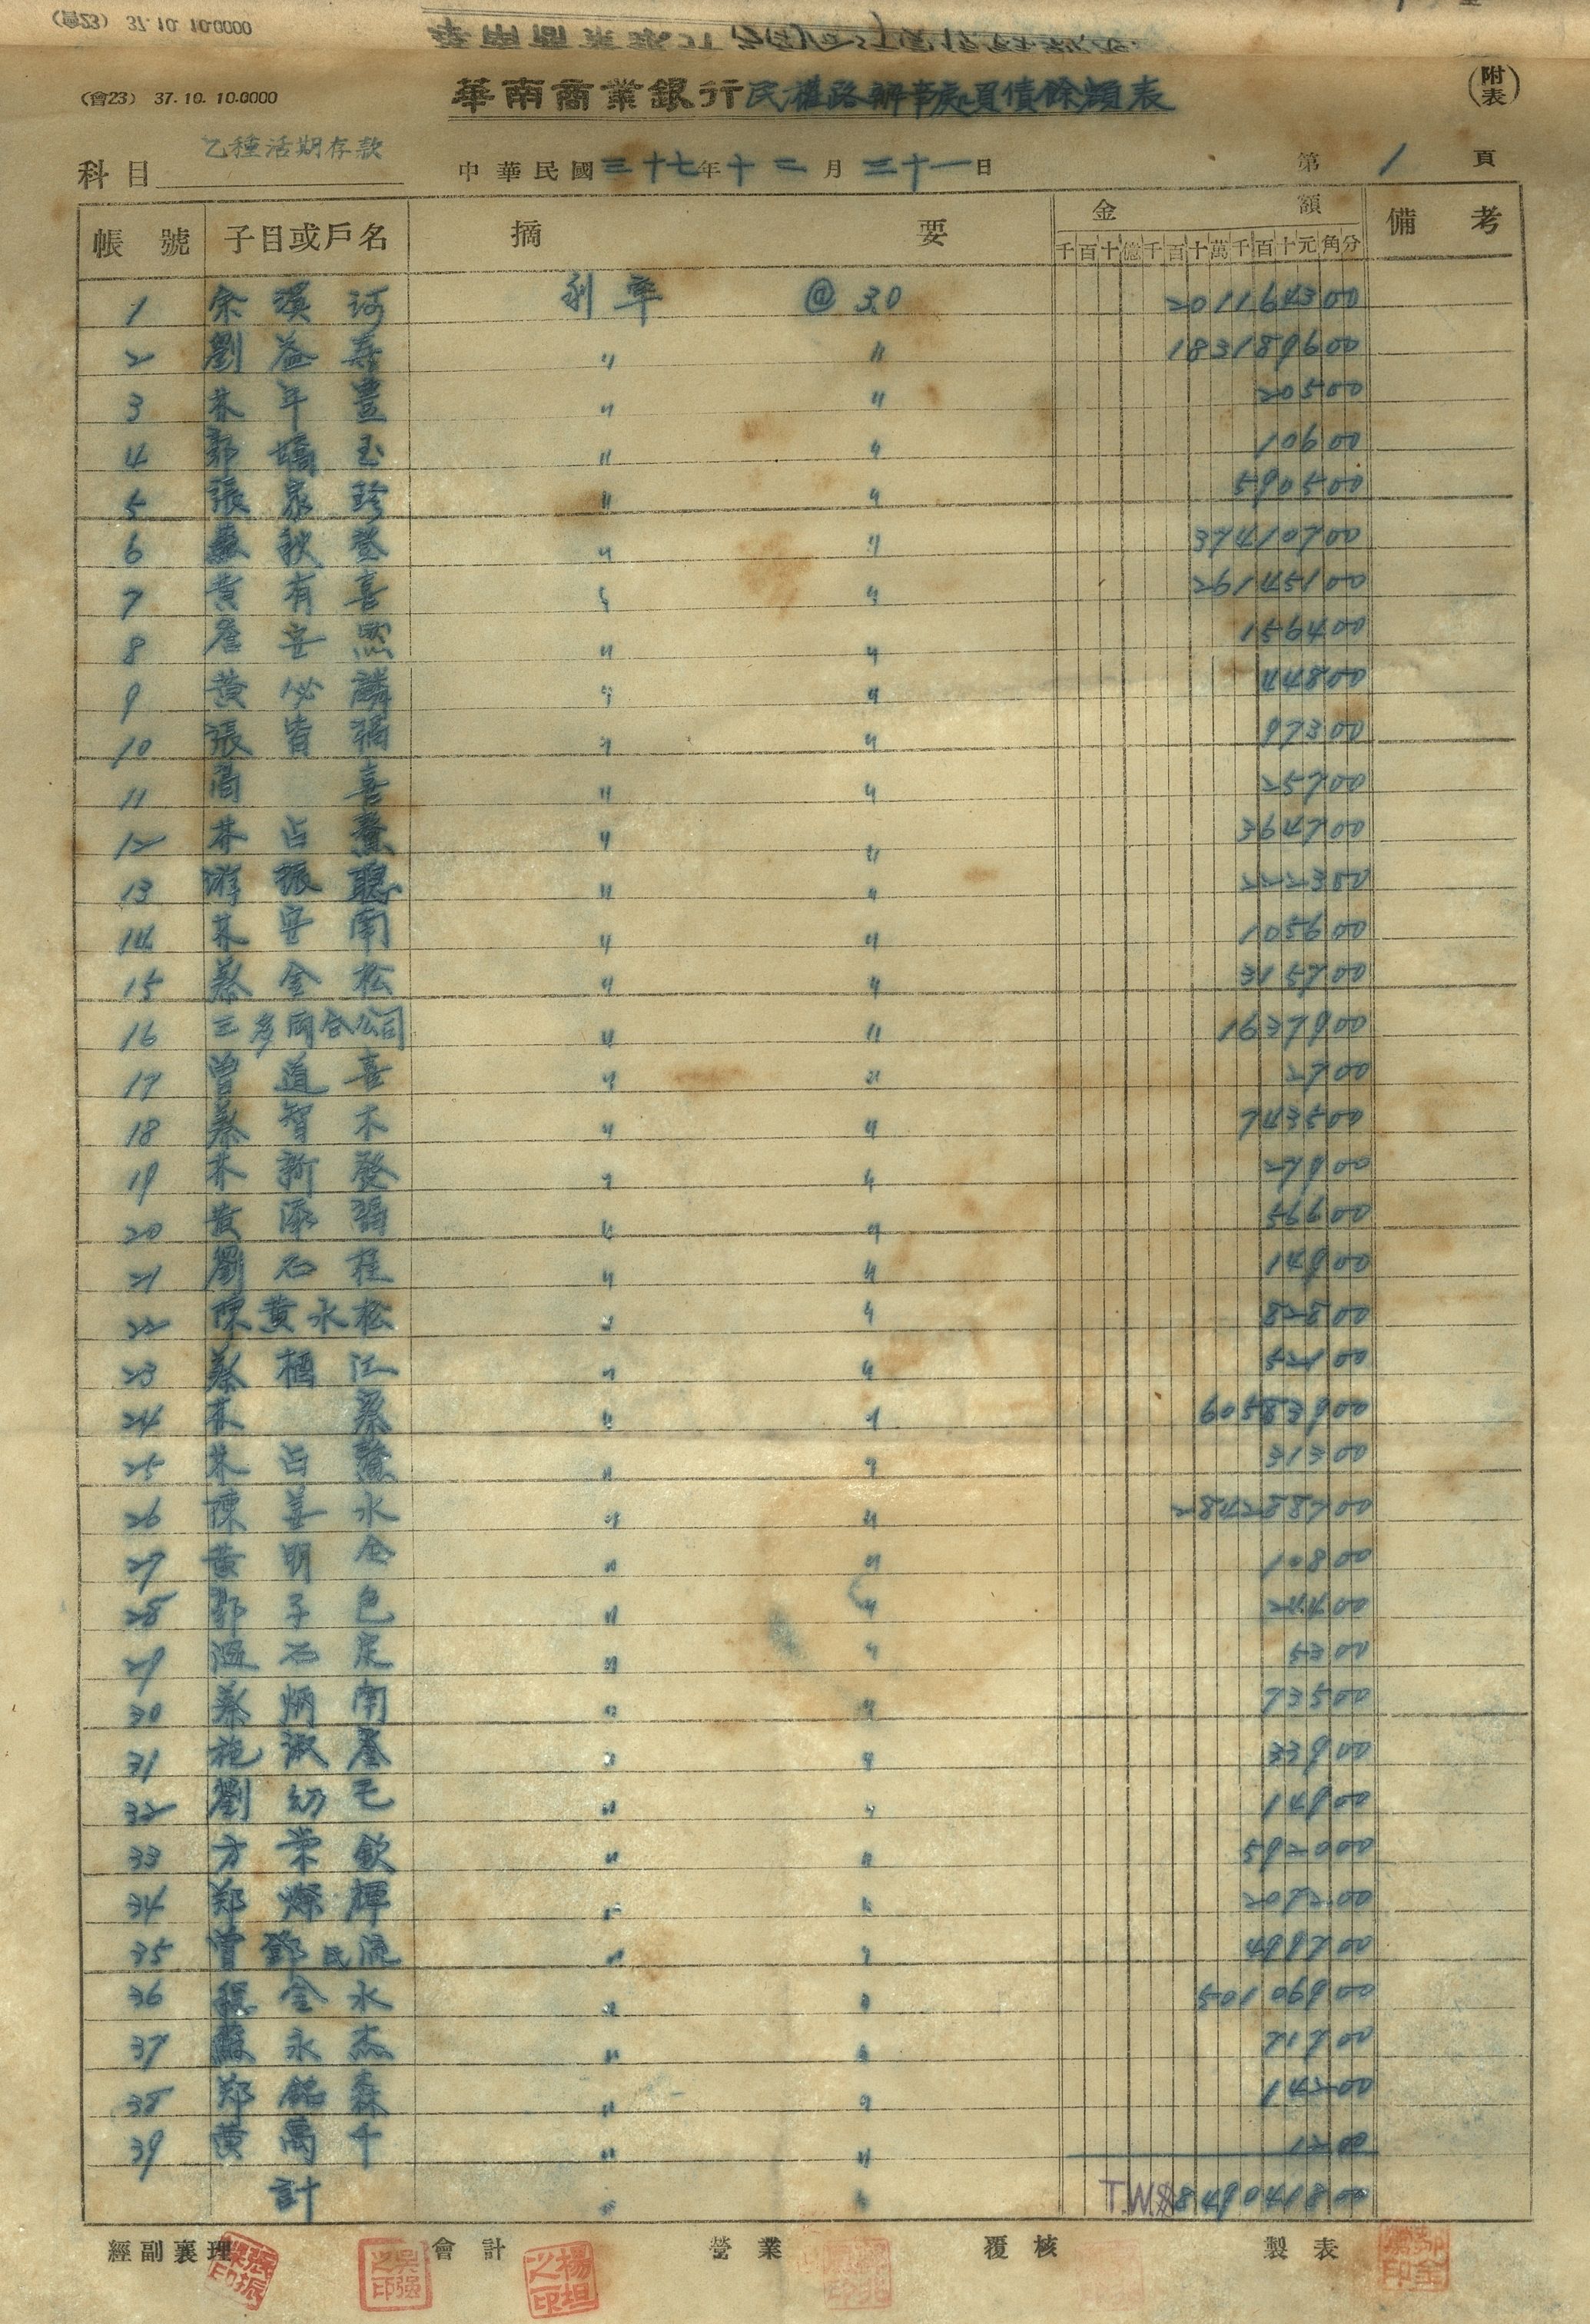 (會23) 37.10.10.0000
華南商業銀行民權路辦事處負債餘額表
(附表)
科目 乙種活期存款 中華民國三十七年十二月三十一日 第1頁
帳號 子目或戶名 摘要 金額 備考
千百十億千百十萬千百十元角分
1 宗漢河 利率 @ 3.0 201164300
2 劉益壽 〃 〃 183189600
3 林年豊 〃 〃 20500
4 郭嬌玉 〃 〃 10600
5 張泉珍 〃 〃 590500
6 秋登 〃 〃 37410700
7 黄有喜 〃 〃 26145100
8 詹安 〃 〃 156400
9 黄必麟 〃 〃 44800
10 張皆 〃 〃 97300
11 喜 〃 〃 25700
12 林占鰲 〃 〃 364700
13 游振聰 〃 〃 222380
14 林安南 〃 〃 105600
15 蔡金松 〃 〃 315700
16 三多同合公司 〃 〃 1637900
17 曾道喜 〃 〃 2700
18 蔡智木 〃 〃 743500
19 林新發 〃 〃 27900
20 黄添 〃 〃 56600
21 劉石柱 〃 〃 14900
22 陳黄永松 〃 〃 82800
23 蔡栖江 〃 〃 52100
24 林 〃 〃 60583900
25 林占鰲 〃 〃 31300
26 陳善水 〃 〃 284288700
27 黄明全 〃 〃 10800
28 鄂子色 〃 〃 24400
29 石定 〃 〃 5300
30 蔡炳南 〃 〃 73500
31 施淑 〃 〃 33900
32 劉幼毛 〃 〃 14900
33 方荣欽 〃 〃 592000
34 郑燦輝 〃 〃 207200
35 曾鄧民流 〃 〃 498700
36 程金水 〃 〃 50109900
37 蘇永杰 〃 〃 21700
38 郑銘森 〃 〃 14200
39 黄萬千 〃 〃 1200
計 〃 〃 T.W.$849041800
經副襄理 會計 營業 覆核 製表
吳强之印
楊坦之印